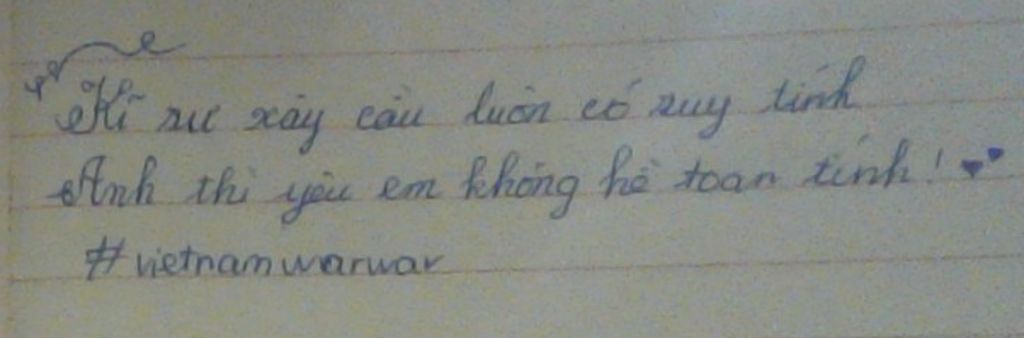 Kĩ sư xây cầu luôn có suy tính
Anh thì yêu em không hề toan tính!
#vietnamwarwar